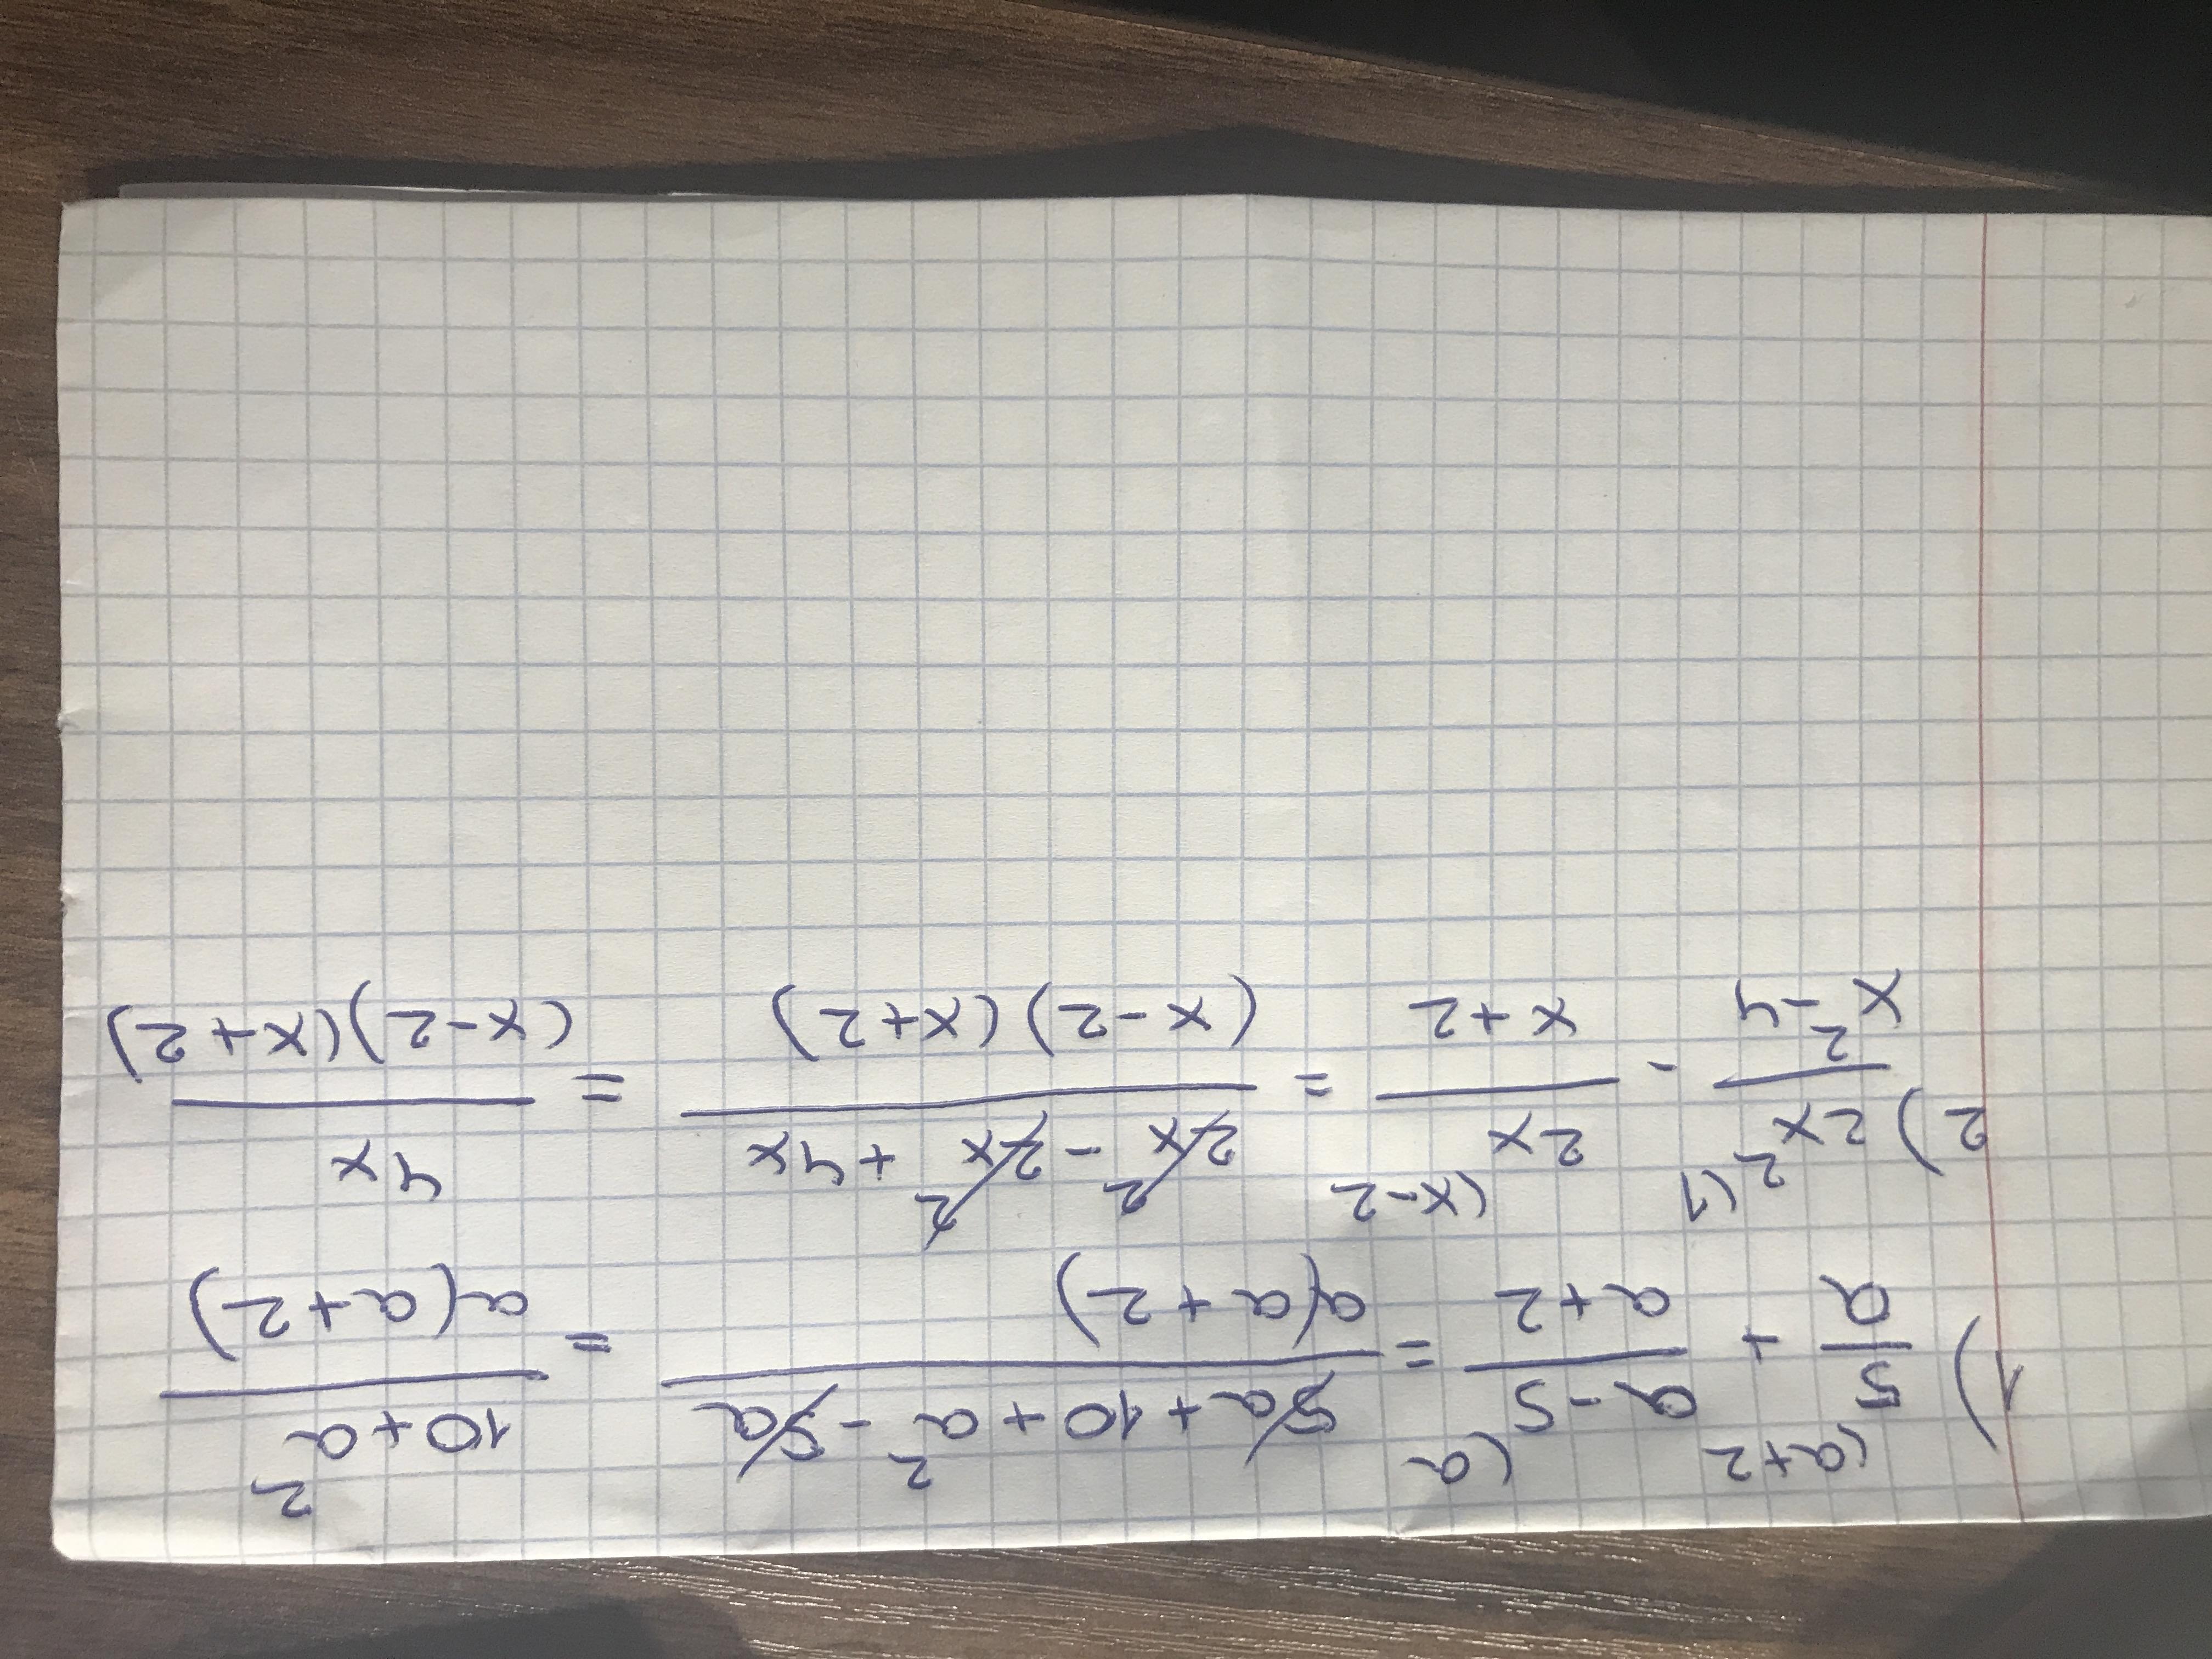 1) 5(a+2/a + a-5(a/a+2 = 5a+10+a²-5a/a(a+2) = 10+a²/a(a+2)
2) 2x²(1/x²-4 - 2x(x-2/x+2 = 2x²-2x²+4x/(x-2)(x+2) = 4x/(x-2)(x+2)